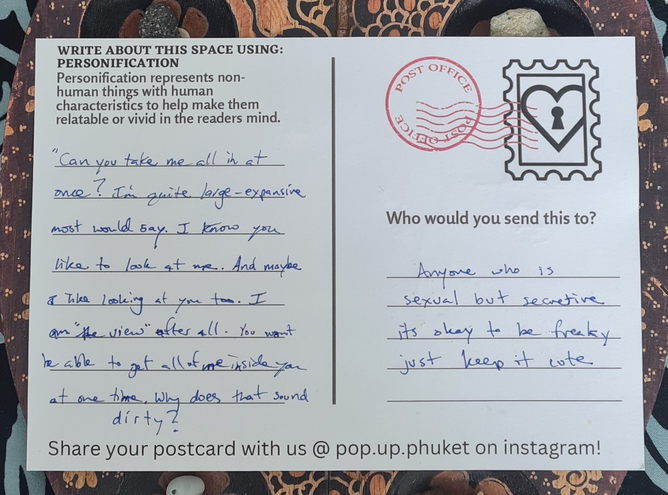 WRITE ABOUT THIS SPACE USING:
PERSONIFICATION
Personification represents non-
human things with human
characteristics to help make them
relatable or vivid in the readers mind.
"Can you take me all in at
once? I'm quite large-expansive
most would say. I know you
like to look at me. And maybe
I like looking at you too. I
am "the view" after all. You wont
be able to get all of me inside you
at one time. Why does that sound
dirty?
POST OFFICE
POST OFFICE
Who would you send this to?
Anyone who is
sexual but secretive
its okay to be freaky
just keep it cute
Share your postcard with us @ pop.up.phuket on instagram!